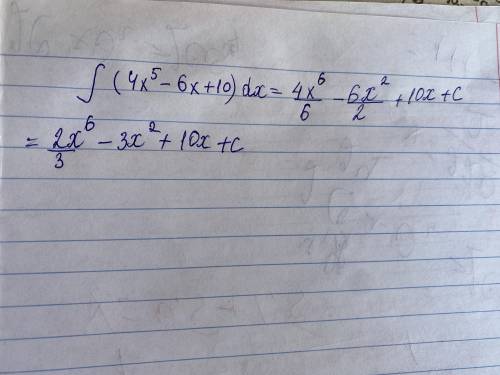 ∫(4x⁵ - 6x + 10) dx = 4x⁶/6 - 6x²/2 + 10x + c
= 2x⁶/3 - 3x² + 10x + c